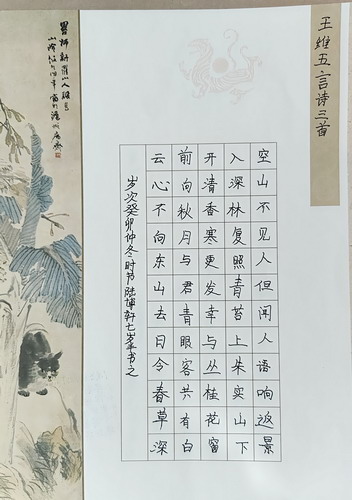 王维五言诗三首
空山不见人但闻人语响返景
入深林复照青苔上朱实山下
开清香寒更发幸与丛桂花窗
前向秋月与君青眼客共有白
云心不向东山去日令春草深
岁次癸卯仲冬时节陆博轩七岁半书之